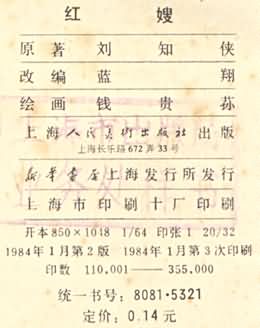 红 嫂
原 著 刘 知 侠
改 编 蓝 翔
绘 画 钱 贵 荪
上海人民美术出版社 出版
上海长乐路672弄33号
新华书店上海发行所发行
上海市印刷十厂印刷
开本850×1048 1/64 印张1 20/32
1984年1月第2版 1984年1月第3次印刷
印数 110,001——355,000
统一书号：8081·5321
定价：0.14元